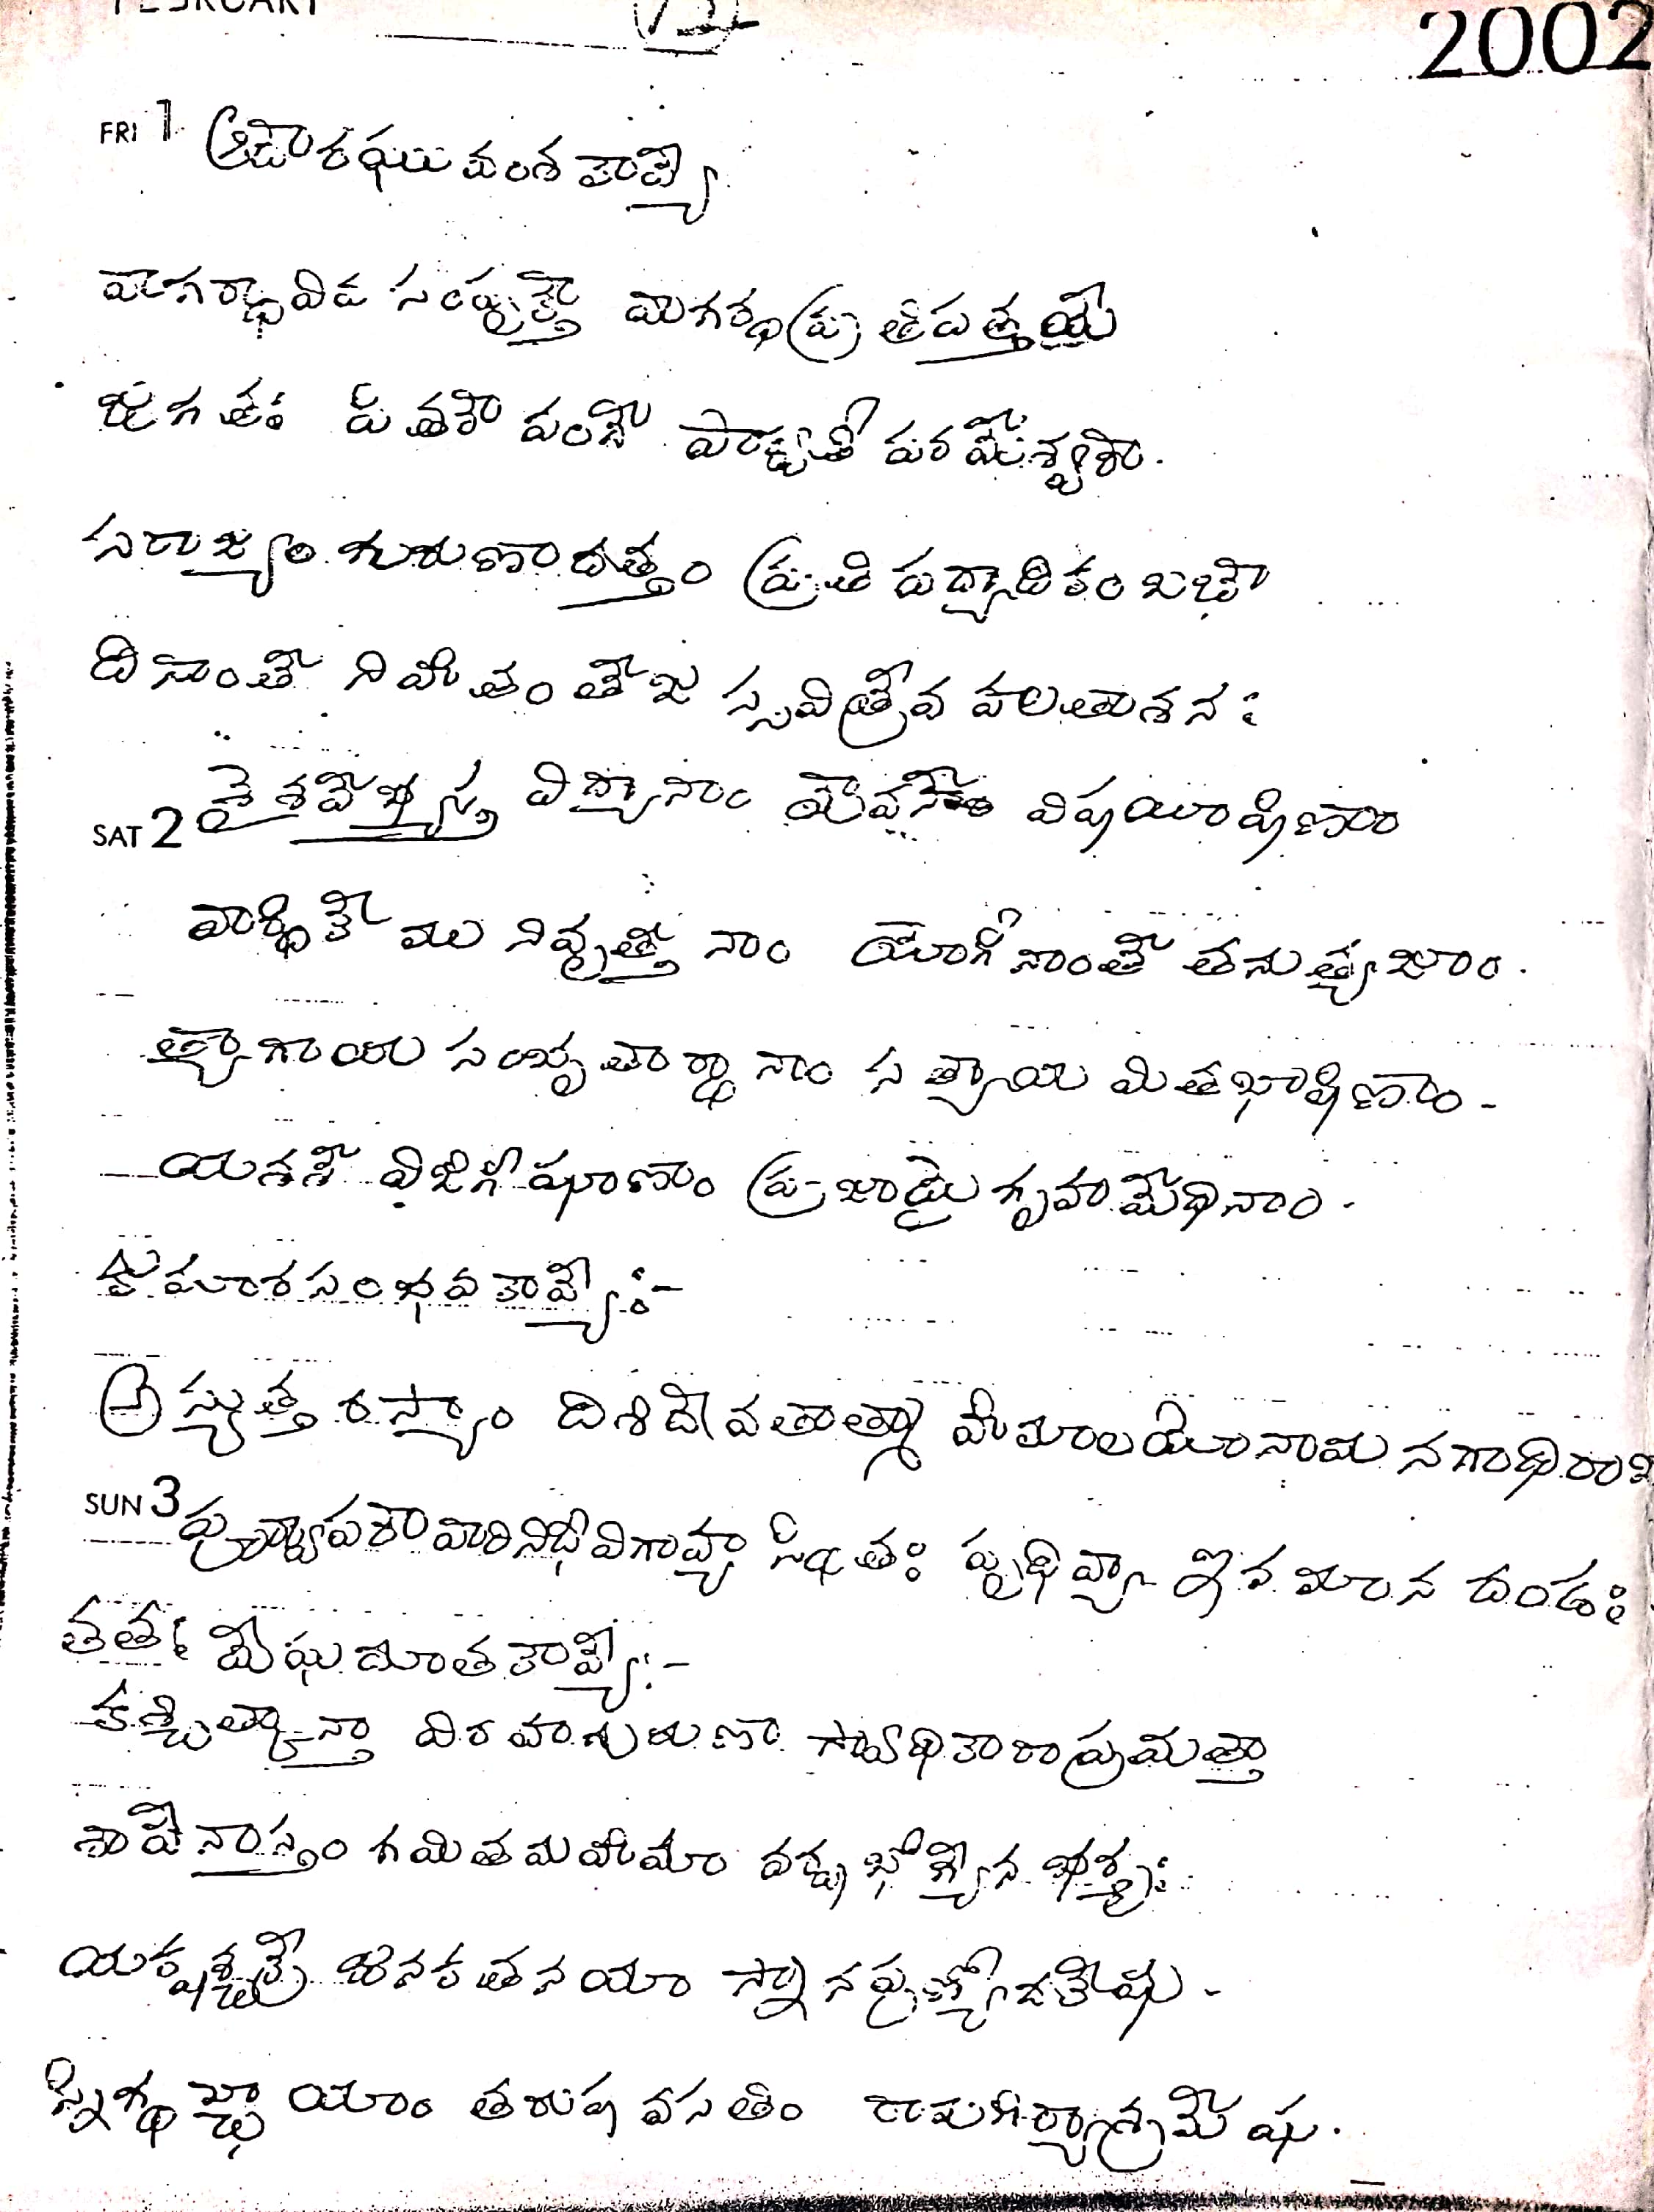 FEBRUARY 12 2002
FRI 1 ఆదౌ రఘు వంశ కావ్యే
వాగర్థావివ సంపృక్తౌ వాగర్థ ప్రతిపత్తయే
జగతః పితరౌ వందే పార్వతీ పరమేశ్వరౌ.
సరాజ్యం గురుణా దత్తం ప్రతి పద్యాధికం బభౌ
దినాంతే నిహితం తేజ స్సవిత్రేవ హుతాశనః
SAT 2 శైశవేభ్యస్త విద్యానాం యౌవనే విషయైషిణాం
వార్థకే ము నివృత్తీ నాం యోగేనాంతే తనుత్యజాం.
త్యాగాయ సంభృతార్థానాం సత్యాయ మితభాషిణాం-
యశసే విజిగీషూణాం ప్రజాయై గృహమేధినాం.
కుమారసంభవ కావ్యేః-
అస్త్యుత్తరస్యాం దిశిదేవతాత్మా హిమాలయోనామ నగాధిరాజ
SUN 3 పూర్వాపరౌ వారినిధీవిగాహ్యా స్థితః పృథివ్యా ఇవ మాన దండః
తతః మేఘదూత కావ్యేః-
కశ్చిత్కాన్తా విరహగురుణా స్వాధికారాప్రమత్తా
శాపేనాస్తం గమితమహిమా వర్షభోగ్యేన భర్తృః
యక్షశ్చక్రే జనకతనయా స్నానపుణ్యోదకేషు-
స్నిగ్ధచ్ఛాయాం తరుషు వసతిం రామగిర్యాశ్రమేషు.